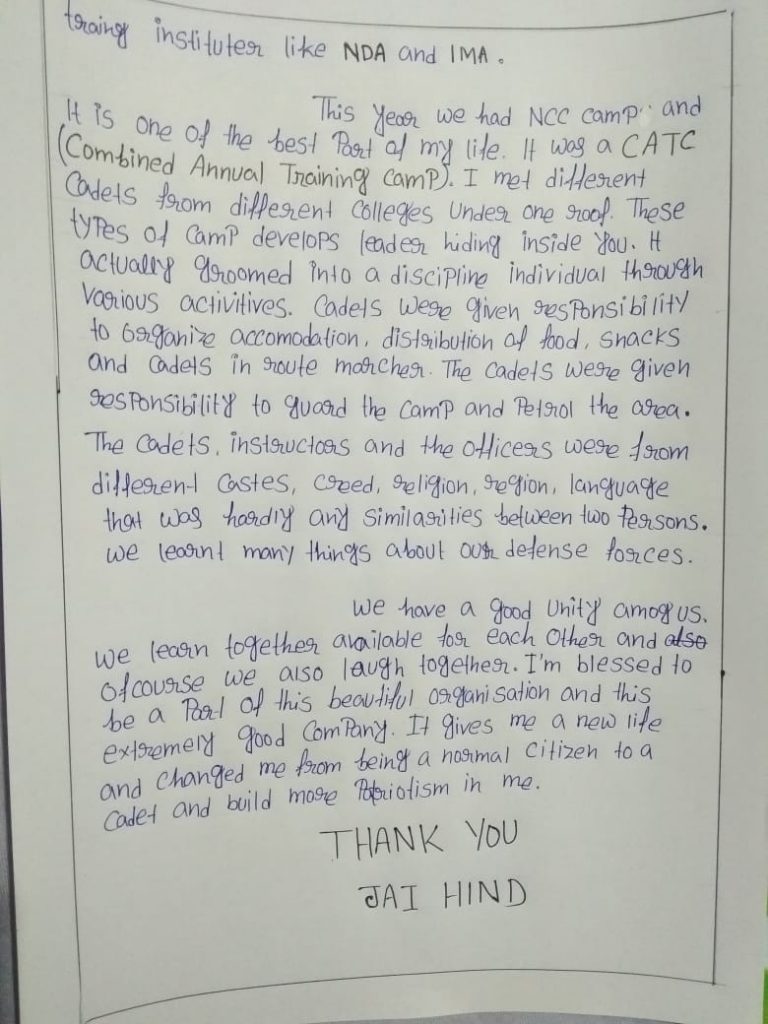 traing instituter like NDA and IMA.
This Year we had NCC camp and
It is one of the best Part of my life. It was a CATC
(Combined Annual Training camp). I met different
Cadets from different Colleges Under one roof. These
types of camp develops leader hiding inside You. It
actually groomed into a discipline individual through
Various activitives. Cadets were given responsibility
to organize accomodation, distribution of food, snacks
and cadets in route marcher. The cadets were given
responsibility to guard the camp and Petrol the area.
The Cadets, instructors and the officers were from
different Castes, creed, religion, region, language
that was hardly any similarities between two Persons.
we learnt many things about our defense forces.
We have a good Unity amog us.
We learn together available for each other and also
Ofcourse we also laugh together. I'm blessed to
be a Part of this beautiful organisation and this
extremely good company. It gives me a new life
and changed me from being a normal Citizen to a
Cadet and build more Patriotism in me.
THANK YOU
JAI HIND